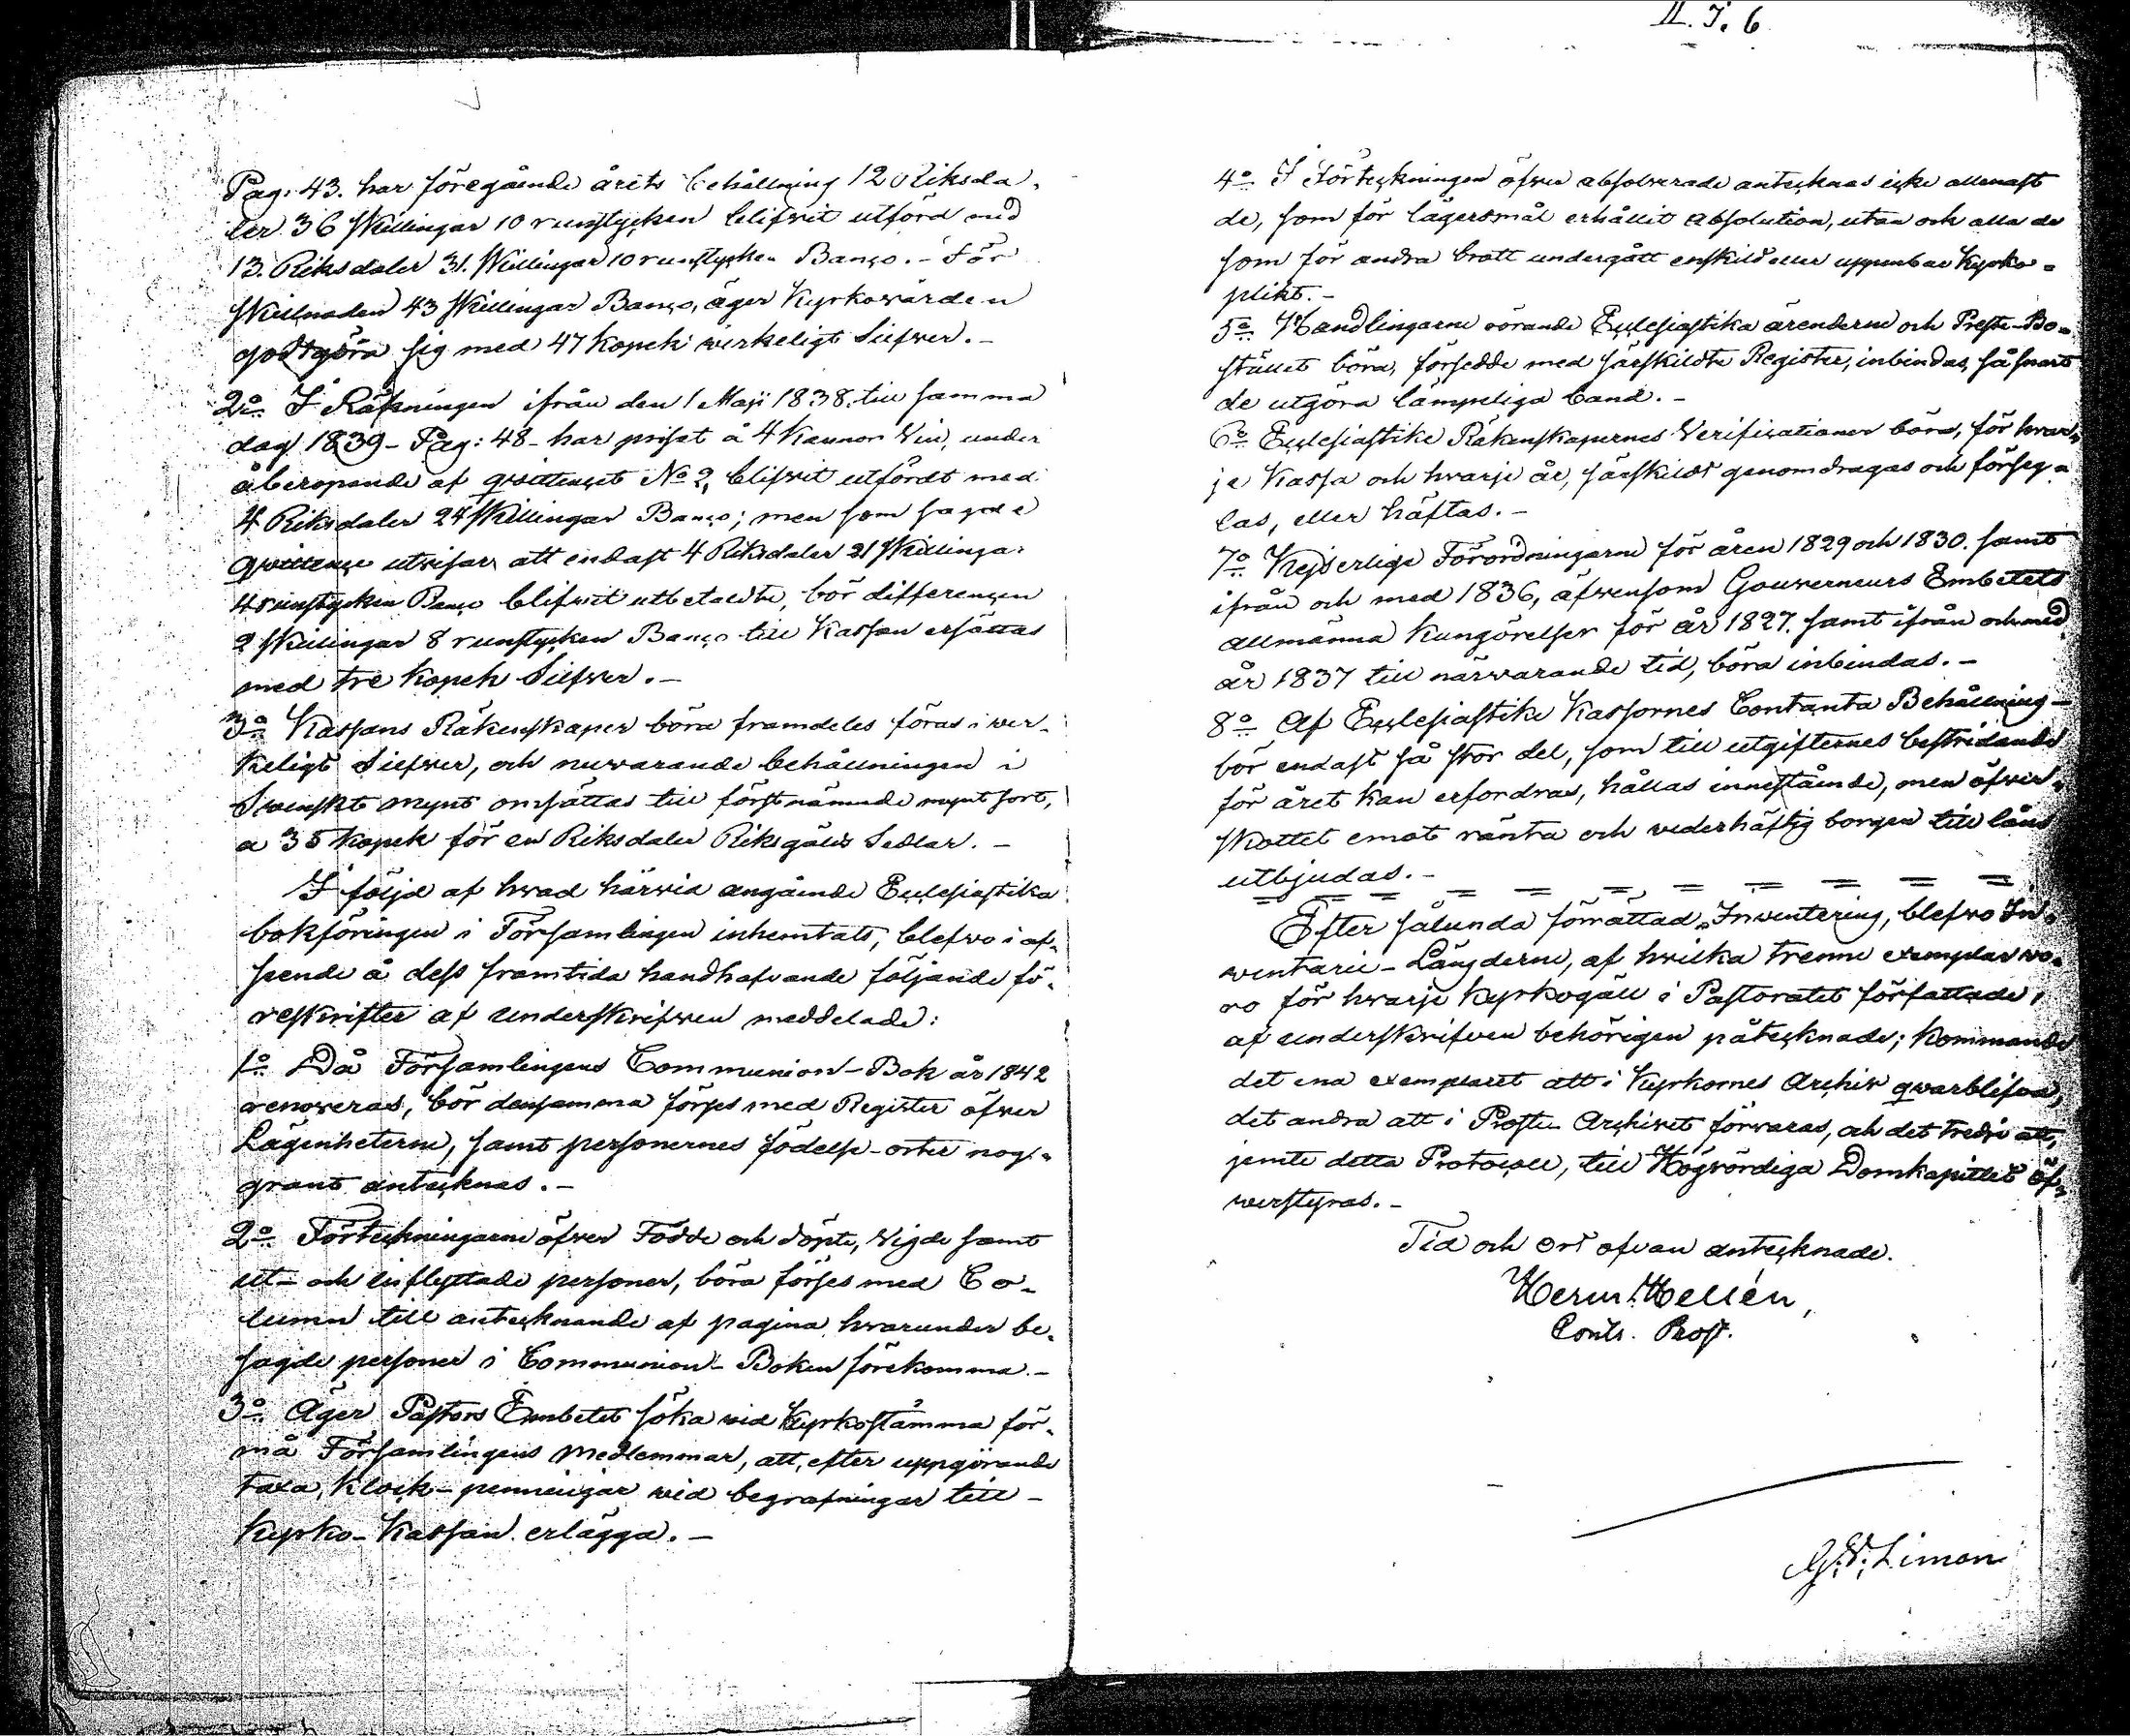 II. J. 6
Pag: 43. har föregående årets behållning 12 Riksda-
ler 36 Skillingar 10 runstycken blifvit utförd med
13. Riksdaler 31. Skillingar 10 runstycken Banco. - För
skillnaden 43 Skillingar Banco, äger Kyrkovärden
godtgöra sig med 47 kopek verkeligt Silfver. -
2:o I Räkningen ifrån den 1 Maji 1838. till samma
dag 1839 - Pag: 48 - har priset å 4 Kannor Vin, under
åberopande af qvittencet No 2, blifvit utfördt med
4 Riksdaler 24 Skillingar Banco; men som sagde
qvittence utvisar att endast 4 Riksdaler 21 Skillingar
4 runstycken Banco blifvit utbetaldte, bör differencen
2 Skillingar 8 runstycken Banco till Kassan ersättas
med tre kopek Silfver. -
3:o Kassans Räkenskaper böra framdeles föras i ver-
keligt Silfver, och nuvarande behållningen i
Svenskt mynt omsättas till förstnämnde myntsort,
a 35 kopek för en Riksdaler Riksgälds Sedlar. -
I följd af hvad härvid angående Ecclesiastika
bokföringen i Församlingen inhemtats, blefvo i af-
seende å dess framtida handhafvande följande fö-
reskrifter af underskrifven meddelade:
1:o Då Församlingens Communion-Bok år 1842
renoveras, bör densamma förses med Register öfver
Lägenheterne, samt personernes födelse-orter nog-
grant antecknas. -
2:o Förteckningarne öfver Födde och döpte, vigde samt
ut- och inflyttade personer, böra förses med Co-
lumn till antecknande af pagina, hvarunder be-
sagde personer i Communion-Boken förekomma. -
3:o Äger Pastors Embetet söka vid Kyrkostämma för-
må Församlingens medlemmar, att, efter uppgörande
taxa, Klock-penningar vid begrafningar till
Kyrko-Kassan erlägga. -
4:o I Förteckningen öfver absolverade antecknas icke allenast
de, som för lägersmål erhållit absolution, utan och alla de
som för andra brott undergått enskild eller uppenbar Kyrko-
plikt. -
5:o Handlingarne rörande Ecclesiastika ärenderne och Preste-Bo-
stället böra, försedde med särskildte Register, inbindas, så snart
de utgöra lämpeliga band. -
6:o Ecclesiastike Räkenskapernes Verificationer böra, för hvar-
je Kassa och hvarje år, särskildt genomdragas och förseg-
las, eller häftas. -
7:o Kejserlige Förordningarne för åren 1829 och 1830. samt
ifrån och med 1836, äfvensom Gouverneurs Embetets
allmänna Kungörelser för år 1827. samt ifrån och med
år 1837 till närvarande tid, böra inbindas. -
8:o Af Ecclesiastike Kassornes Contanta Behållning
bör endast så stor del, som till utgifternes bestridande
för året kan erfordras, hållas innestående, men öfver-
skottet emot ränta och vederhäftig borgen till låns
utbjudas. -
Efter sålunda förrättad Inventering, blefvo In-
ventarie-Längderne, af hvilka trenne exemplar vo-
ro för hvarje Kyrkogäll i Pastoratet författade,
af underskrifven behörigen påtecknade; kommande
det ena exemplaret att i Kyrkornes Archiv qvarblifva,
det andra att i Prosteri Archivet förvaras, och det tredje att,
jemte detta Protocoll, till Högvördiga Domkapitlet öf-
verstyras. -
Tid och ort ofvan antecknade.
Herm. Hellén,
Contr. Prost.
G. V. Liman